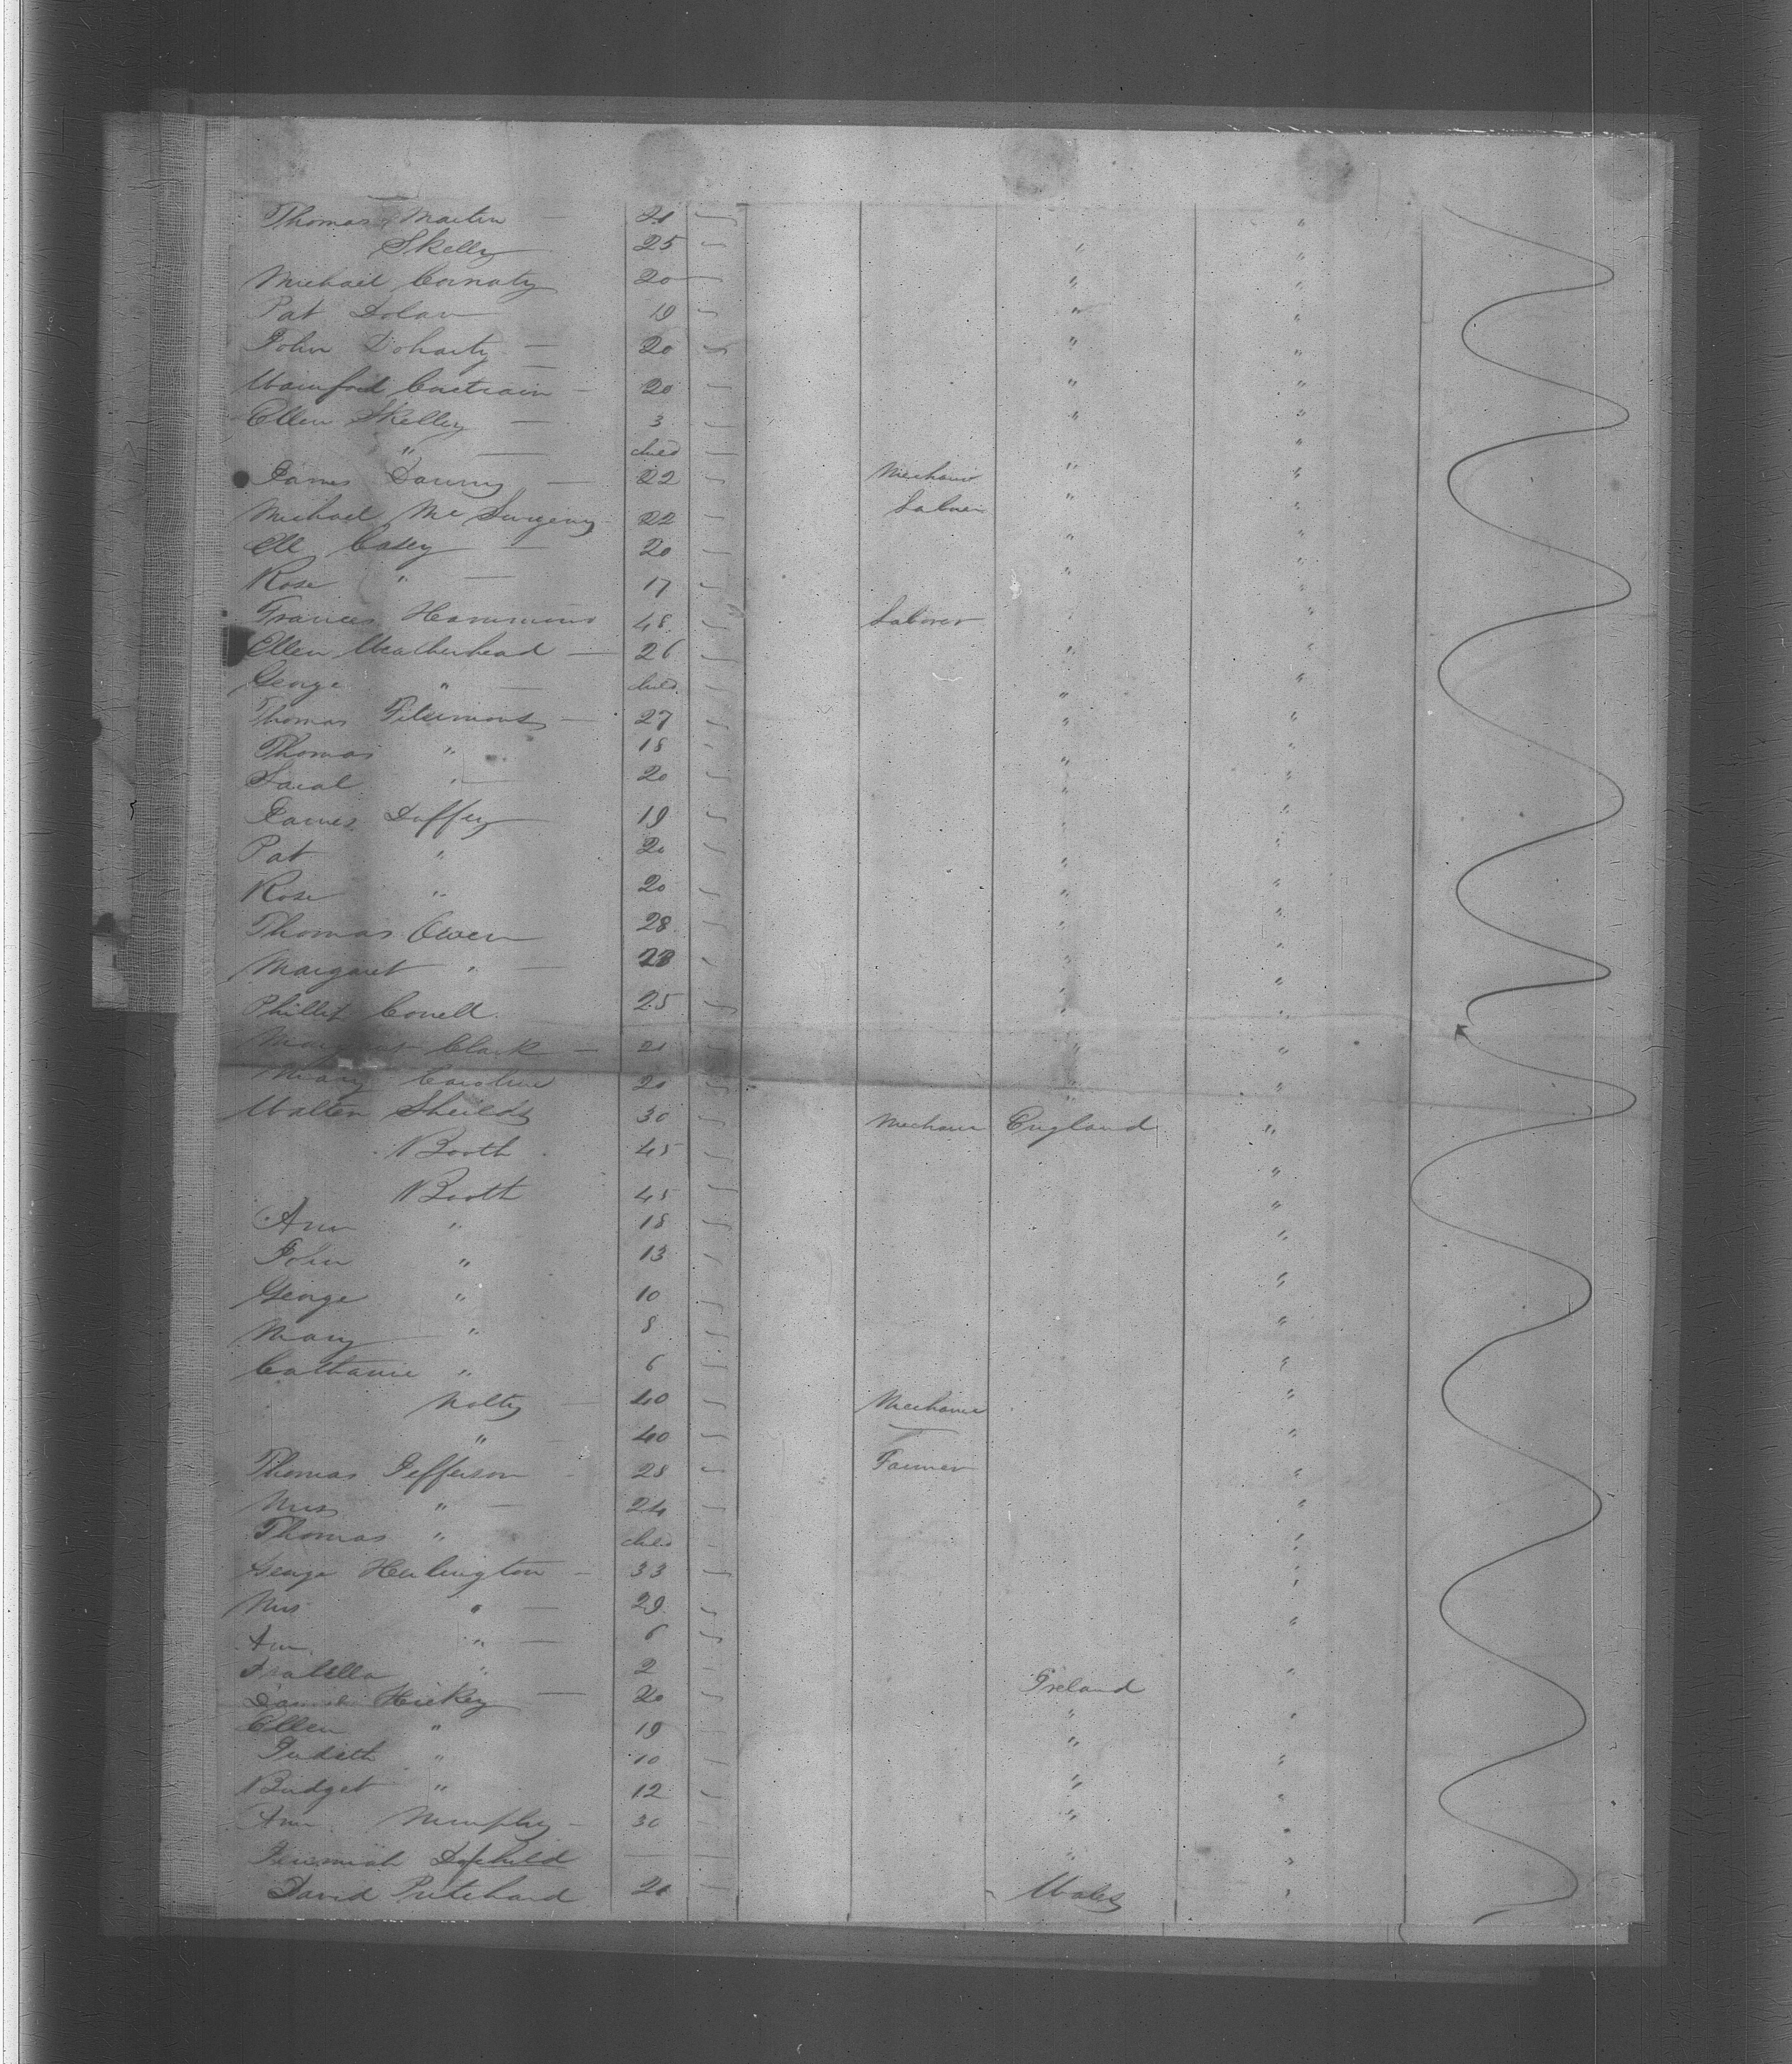 Thomas Martin — 21 "
Skelly 25 " "
Michael Connaty 20 " "
Pat Dolan 19 " "
John Doharty — 20 " "
20 " "
Ellen Skelley — 3 " "
" — child "
James — 22 Mechanic " "
Michael Mc 22 Labor " "
Casey — 20 " "
Rose " — 17 " "
Frances 48 Laborer "
Ellen Weatherhead — 26 " "
George " — child "
Thomas Fitzimons — 27 " "
Thomas " 18 "
" — 20 " "
James Duffey 19 " "
Pat " 20 " "
Rose " 20 " "
Thomas Owen 28 " "
Margaret " — " "
Phillip Conell 25 " "
Margaret Clark — 21 " "
Mary Caroline 20 " "
Walter Sheilds 30 Mechanic England "
Booth 45 "
Booth 45 "
Ann " 18 "
John " 13 "
George " 10 "
Mary " 8 "
Catharine " 6 "
Nolty — 40 Mechanic "
" 40 — "
Thomas Jefferson 28 Farmer "
Mrs " — 24 "
Thomas " child "
George — 33 "
Mrs " — 29 "
Ann " — 6 "
Isabella " 2 "
Hickey — 20 Ireland "
Ellen " 19 " "
Judith " 10 " "
Bridget " 12 " "
Ann Murphy — 30 " "
Jeremiah — " "
David Pritchard 21 Wales "